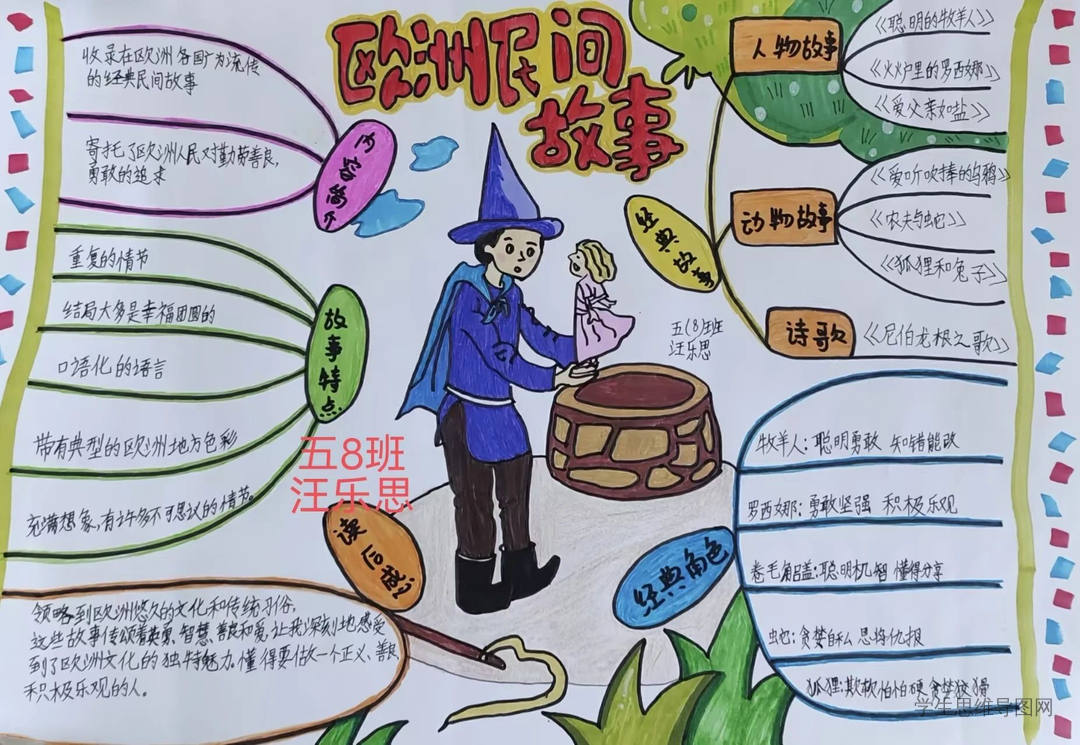 欧洲民间
故事
内容简介
收录在欧洲各国广为流传
的经典民间故事
寄托了欧洲人民对勤劳善良,
勇敢的追求
故事特点
重复的情节
结局大多是幸福团圆的
口语化的语言
带有典型的欧洲地方色彩
充满想象,有许多不可思议的情节。
五8班
汪乐思
读后感
领略到欧洲悠久的文化和传统习俗,
这些故事传颂着英勇、智慧、善良和爱,让我深刻地感受
到了欧洲文化的独特魅力。懂得要做一个正义、善良
积极乐观的人。
经典故事
人物故事
《聪明的牧羊人》
《火炉里的罗西娜》
《爱父亲如盐》
动物故事
《爱听吹捧的乌鸦》
《农夫与蛇》
《狐狸和兔子》
诗歌
《尼伯龙根之歌》
五(8)班
汪乐思
经典角色
牧羊人:聪明勇敢 知错能改
罗西娜:勇敢坚强 积极乐观
卷毛角:聪明机智 懂得分享
蛇:贪婪自私 恩将仇报
狐狸:欺软怕硬 贪婪狡猾
学生思维导图网